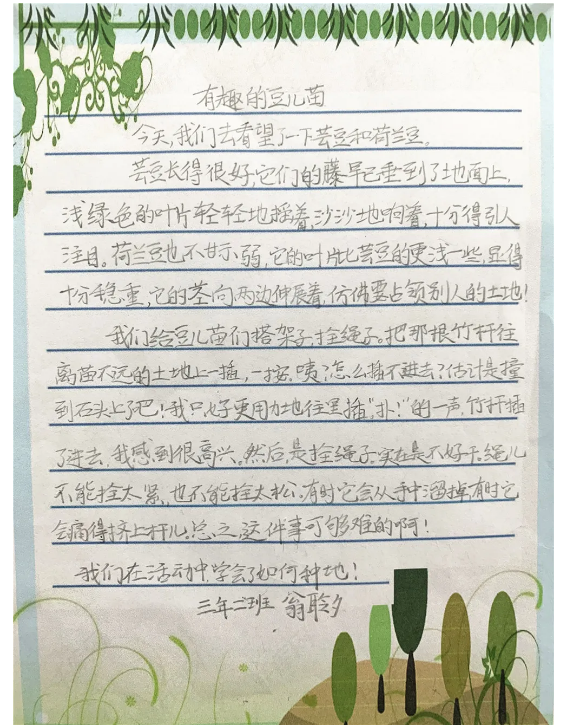 有趣的豆儿苗
今天,我们去看望了一下芸豆和荷兰豆。
芸豆长得很好,它们的藤早已垂到了地面上,
浅绿色的叶片轻轻地摇着,沙沙地响着,十分得引人
注目。荷兰豆也不甘示弱,它的叶片比芸豆的更浅一些,显得
十分稳重,它的茎向两边伸展着,仿佛要占领别人的土地!
我们给豆儿苗们搭架子,拴绳子。把那根竹杆往
离苗不远的土地上一插,一按,咦?怎么插不进去?估计是撞
到石头上了吧!我只好更用力地往里插,"扑!"的一声,竹杆插
了进去,我感到很高兴。然后,是拴绳子,实在是不好干。绳儿
不能拴太紧,也不能拴太松。有时它会从手中溜掉,有时它
会痛得挤上杆儿。总之,这件事可够难的啊!
我们在活动中,学会了如何种地!
三年二班 翁聆夕